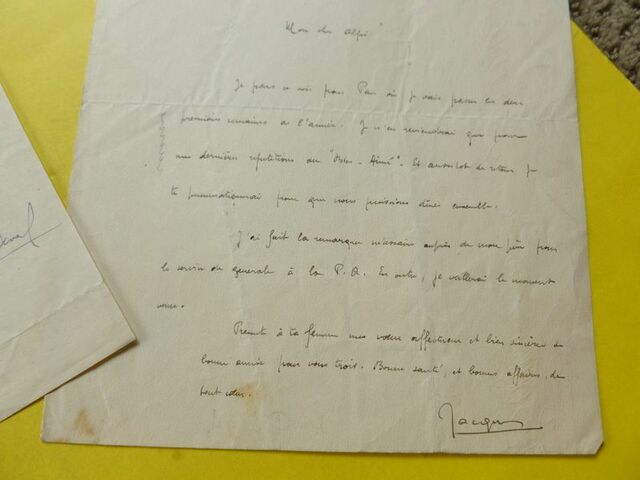 Mon cher Alfred
Je pars ce soir pour Pau où je vais passer les deux
premières semaines de l'année. Je n'en reviendrai que pour
mes dernières répétitions du "Bien-Aimé". Et aussitôt de retour je
te pneumatiquerai pour que nous puissions dîner ensemble.
J'ai fait la remarque nécessaire auprès de mon père pour
le service de générale à la P.A. En outre, je veillerai le moment
venu.
Présente à ta femme mes vœux affectueux et bien sincères de
bonne année pour vous trois. Bonne santé, et bonnes affaires, de
tout cœur.
Jacques